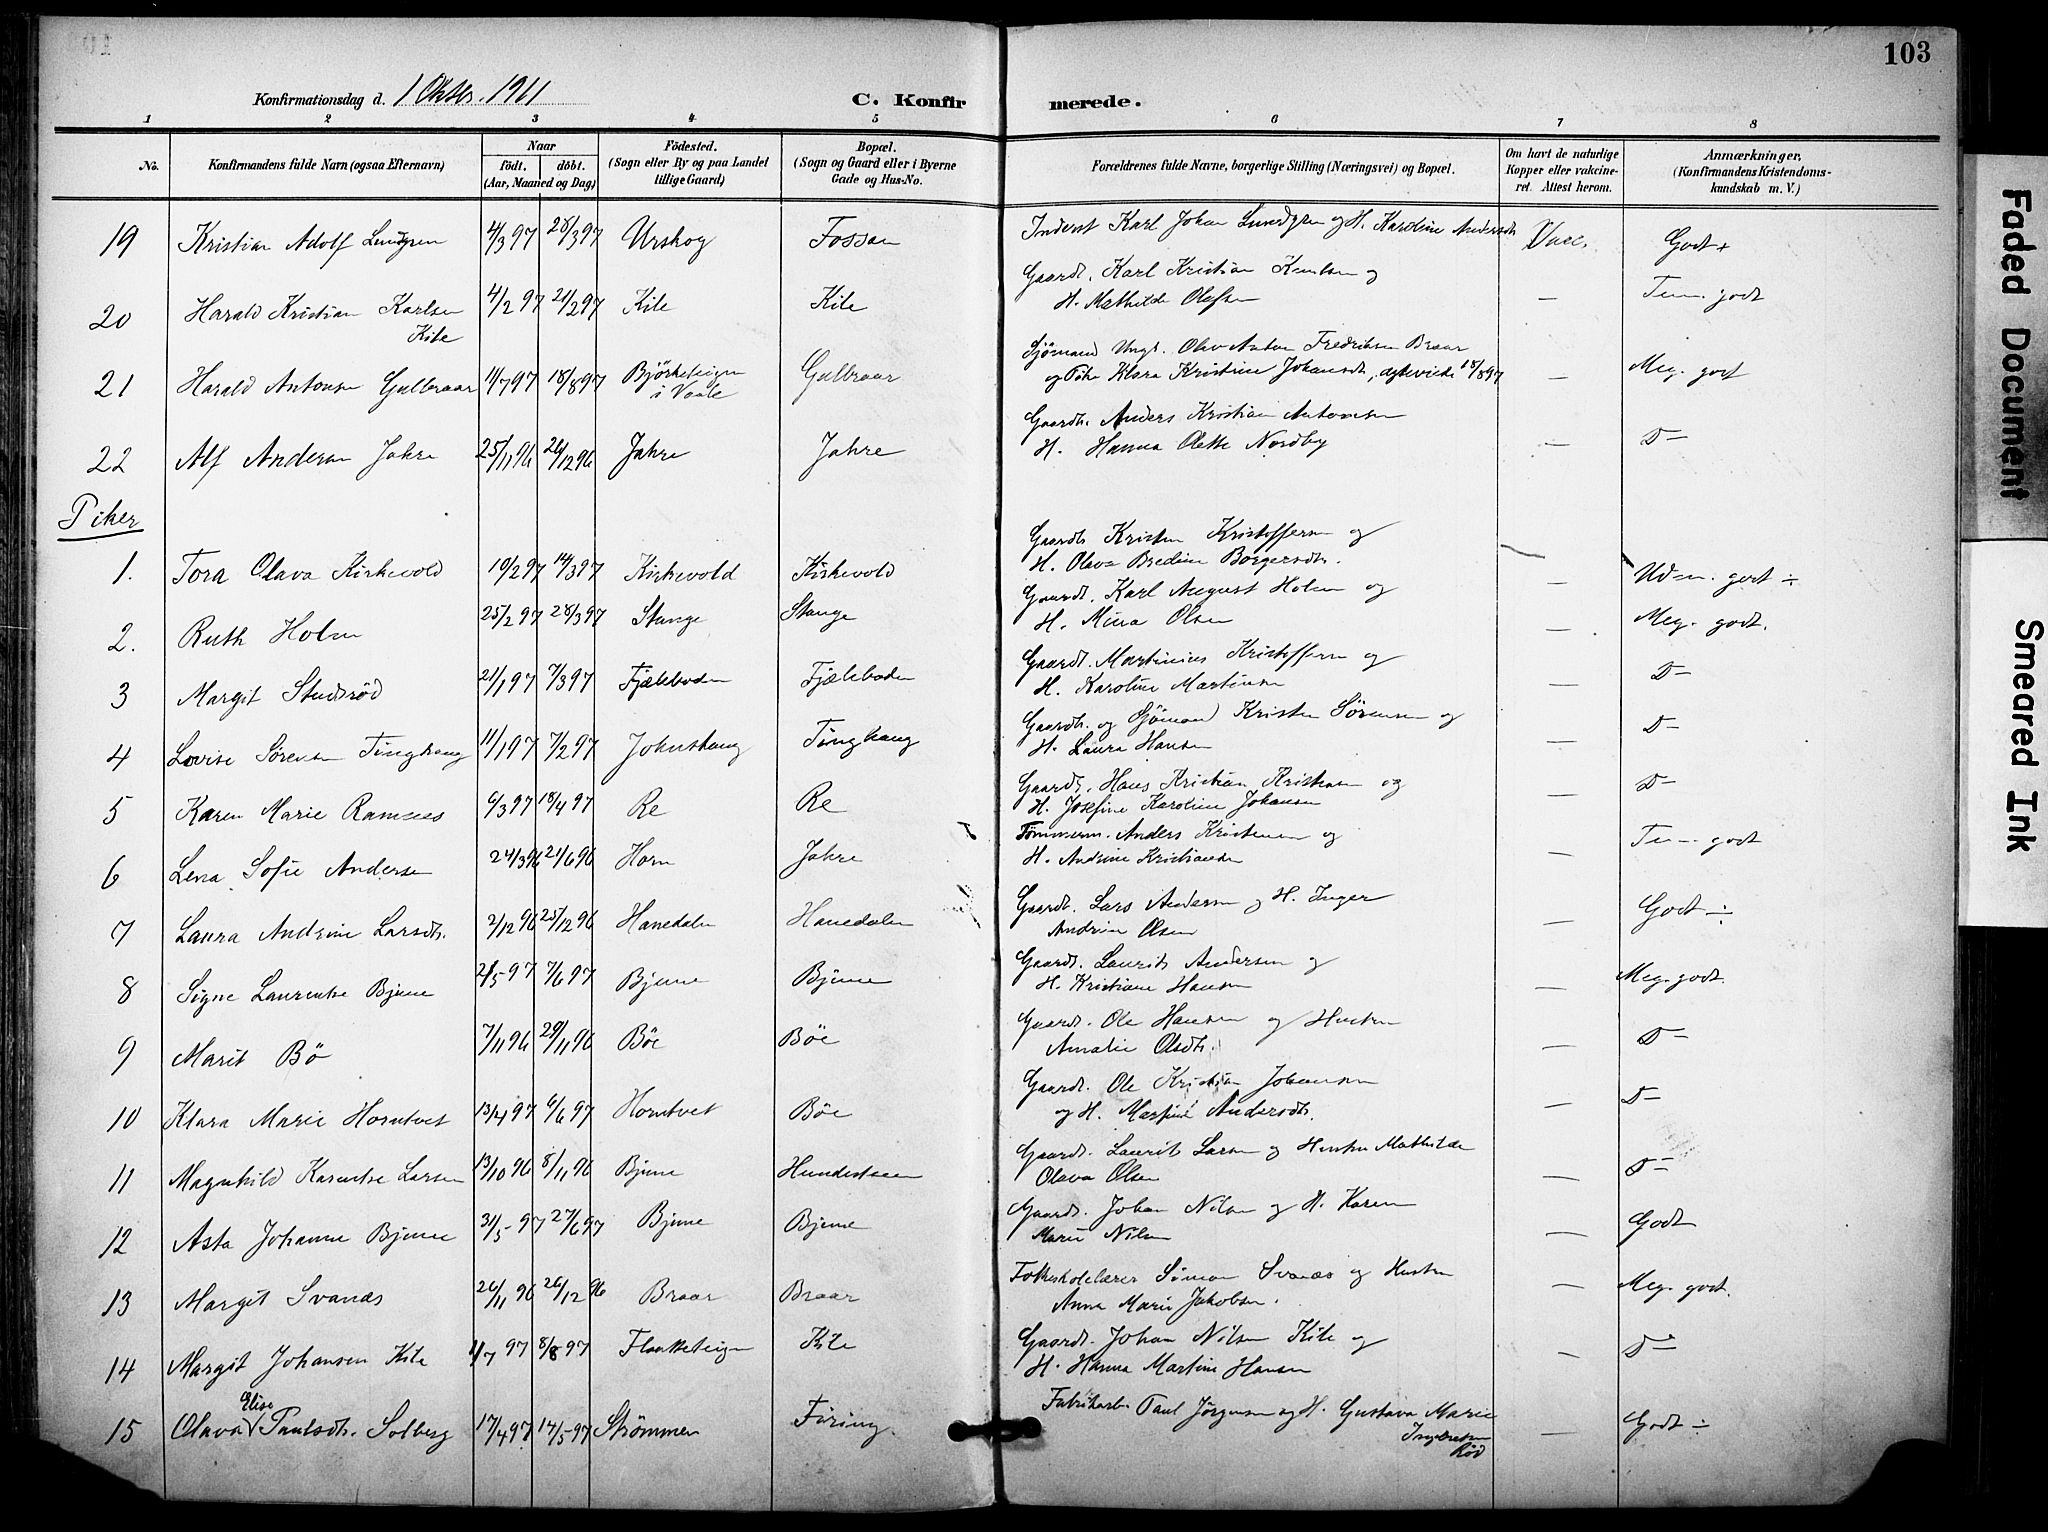 103
Konfirmationsdag d. 1 Oktbr. 1911
C. Konfirmerede.
1 2 3 4 5 6 7 8
No. Konfirmandens fulde Navn (ogsaa Efternavn) Naar födt. döbt. (Aar, Maaned og Dag) Födested. (Sogn eller By og paa Landet tillige Gaard) Bopæl. (Sogn og Gaard eller i Byerne Gade og Hus-No. Forældrenes fulde Navne, borgerlige Stilling (Næringsvei) og Bopæl. Om havt de naturlige Kopper eller vakcineret. Attest herom. Anmærkninger, (Konfirmandens Kristendomskundskab m. V.)
19 Kristian Adolf Lundgren 4/3 97 28/3 97 Urskog Fossan Inderst Karl Johan Lundgren og H. Karoline Andersdt. Vacc. Godt +
20 Harald Kristian Karlsen Kile 4/2 97 21/2 97 Kile Kile Gaardb. Karl Kristian Knutsen og H. Mathilde Olafsen — Tem. godt
21 Harald Antonsen Gulbraar 11/7 97 18/8 97 Björketeigen i Vaale Gulbraar Sjømand Ungk. Olav Anton Fredriksen Braar og Pike Klara Kristine Johansdt., ægteviede 18/8 97 — Meg. godt
22 Alf Andersen Jahre 25/11 96 26/12 96 Jahre Jahre Gaardb. Anders Kristian Antonsen H. Hanna Olette Nordby — D—
Piker
1. Tora Olava Kirkevold 19/2 97 14/3 97 Kirkevold Kirkevold Gaardb. Kristen Kristoffersen og H. Olava Bredine Borgersdt. — Udm. godt ÷
2. Ruth Holm 25/2 97 28/3 97 Stange Stange Gaardb. Karl August Holm og H. Mina Olsen — Meg. godt.
3 Margit Studsrød 21/1 97 7/3 97 Fjæleboden Fjæleboden Gaardb. Martinius Kristoffersen og H. Karoline Martinsen — D—
4 Lovise Sørensen Tinghaug 11/1 97 7/2 97 Johnshaug Tinghaug Gaardb. og Sjømand Kristen Sørensen og H. Laura Hansen — D—
5 Karen Marie Ramnes 6/3 97 18/4 97 Re Re Gaardb. Hans Kristian Kristensen og H. Josefine Karoline Johansen — D—
6 Lena Sofie Andersen 24/3 96 21/6 96 Horn Jahre Tømmerm. Anders Kristensen og H. Andrine Kristiansen — Tem. godt
7 Laura Andrine Larsdt. 2/12 96 25/12 96 Hanedalen Hanedalen Gaardb. Lars Andersen og H. Inger Andrine Olsen — Godt ÷
8 Signe Laurentse Bjune 2/5 97 7/6 97 Bjune Bjune Gaardb. Laurits Andersen og H. Kristiane Hansen — Meg. godt.
9 Marit Bö 7/11 96 29/11 96 Böe Böe Gaardb. Ole Hansen og Hustru Amalie Olsdt. — D—
10 Klara Marie Horntvet 13/4 97 6/6 97 Horntvet Böe Gaardb. Ole Kristian Johansen og H. Martine Andersdt. — D—
11 Magnhild Karentse Larsen 13/10 96 8/11 96 Bjune Hundestuen Gaardb. Laurits Larsen og Hustru Mathilde Olava Olsen — D—
12 Asta Johanne Bjune 31/5 97 27/6 97 Bjune Bjune Gaardb. Johan Nilsen og H. Karen Marie Nilsen — Godt
13 Margit Svanæs 26/11 96 26/12 96 Braar Braar Folkeskolelærer Simon Svanæs og Hustru Anna Marie Jakobsen. — Meg. godt.
14 Margit Johansen Kile 1/7 97 8/8 97 Flaatteteigen Kile Gaardb. Johan Nilsen Kile og H. Hanna Martine Hansen — D—
15 Olava Elise Paulsdt. Solberg 17/4 97 17/5 97 Strømmen Föring Fabrikarb. Paul Jørgensen og H. Gustava Marie Ingebretsen Rød — Godt ÷
Faded Document
Smeared Ink